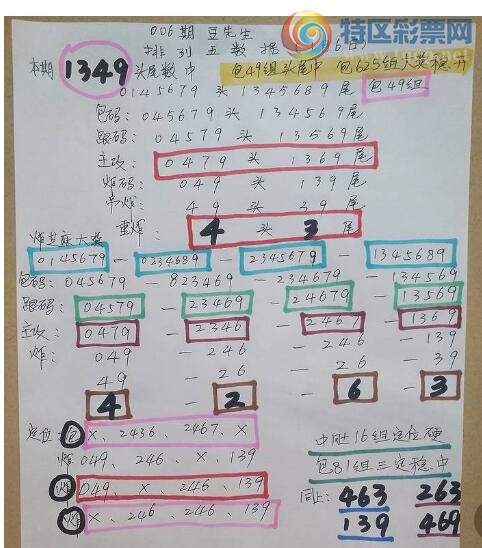 006期 豆先生
特区彩票网
排列五数据
本期 1349 头尾数中 包49组头尾中 包625组大奖稳开
0145679 头 1345689 尾 包49组
包码: 045679 头 134569 尾
跟码: 04579 头 13569 尾
主攻: 0479 头 1369 尾
炸码: 049 头 139 尾
吊炸: 49 头 39 尾
重炸: 4 头 3 尾
炸芝麻大奖
0145679 - 0234689 - 2345679 - 1345689
包码: 045679 - 823469 - 234679 - 134569
跟码: 04579 - 23469 - 24679 - 13569
主攻: 0479 - 2346 - 2467 - 1369
炸: 049 - 246 - 246 - 139
49 - 26 - 26 - 39
4 - 2 - 6 - 3
定位: 包 X、2436、2467、X
炸 049、246、X、139
炸 049、X、246、139
炸 X、246、246、139
中肚16组定位硬
包81组三定稳中
同上: 463 263
139 469